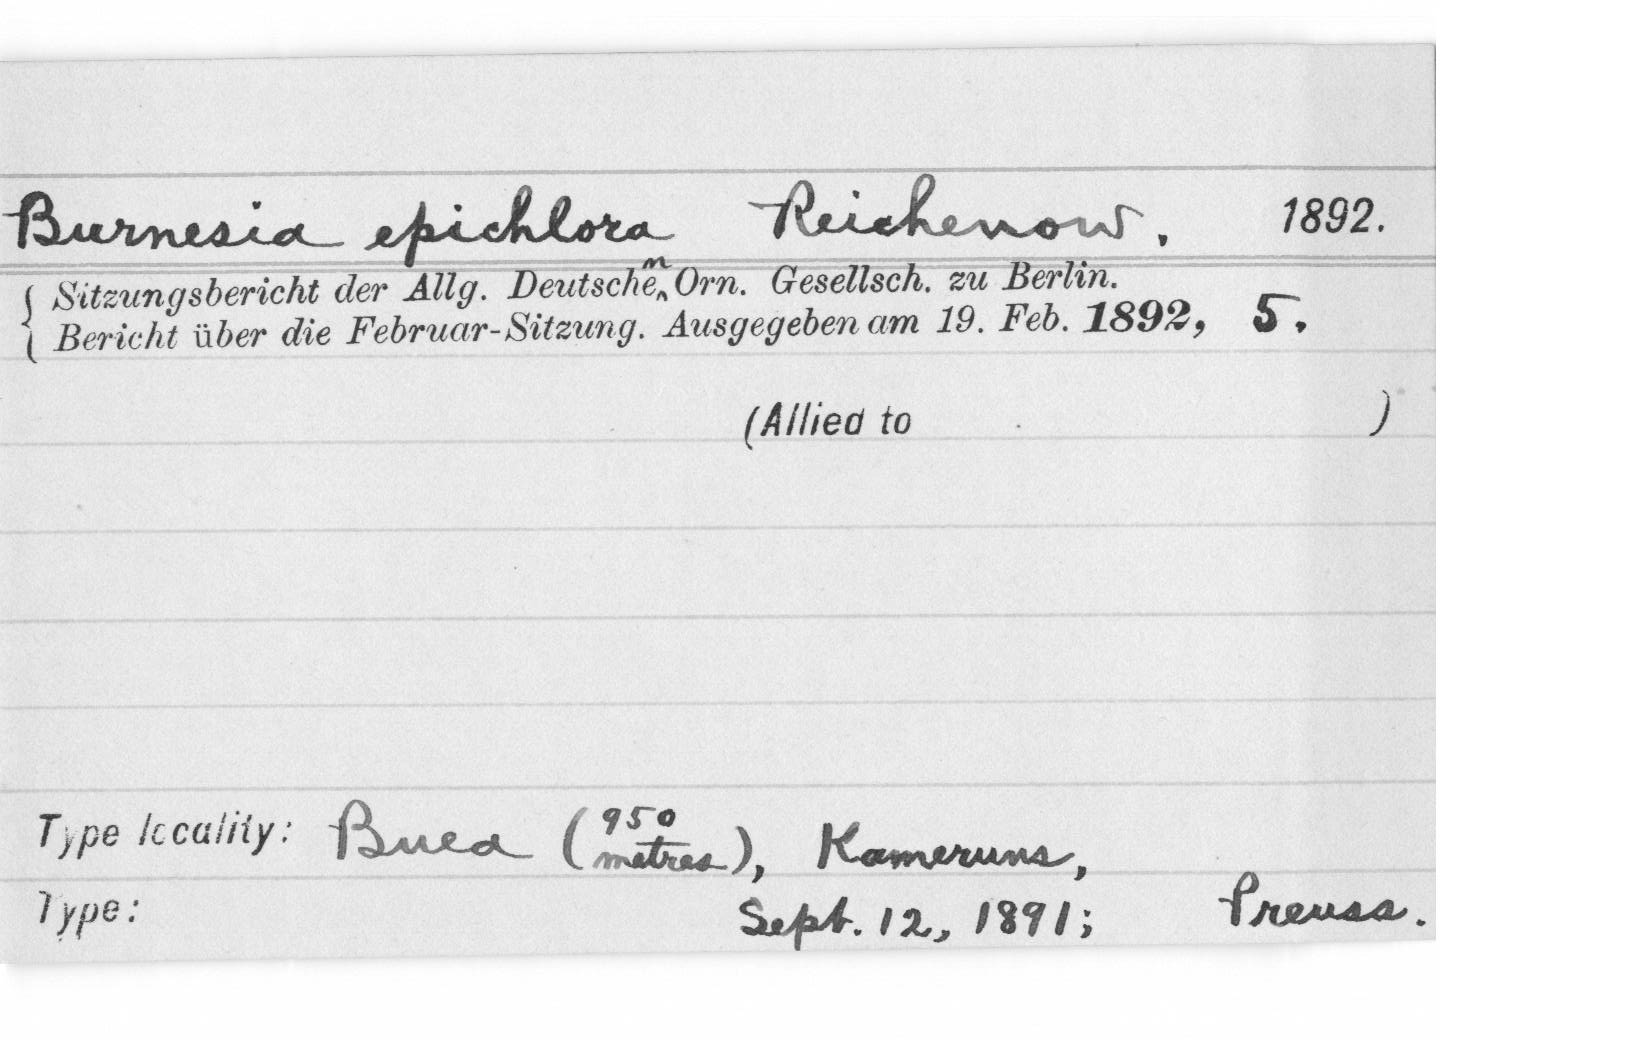 Burnesia epichlora Reichenow. 1892.
{ Sitzungsbericht der Allg. Deutschen Orn. Gesellsch. zu Berlin.
Bericht über die Februar-Sitzung. Ausgegeben am 19. Feb. 1892, 5.
(Allied to )
Type locality: Buea (950 metres), Kameruns,
Type: Sept. 12, 1891; Preuss.